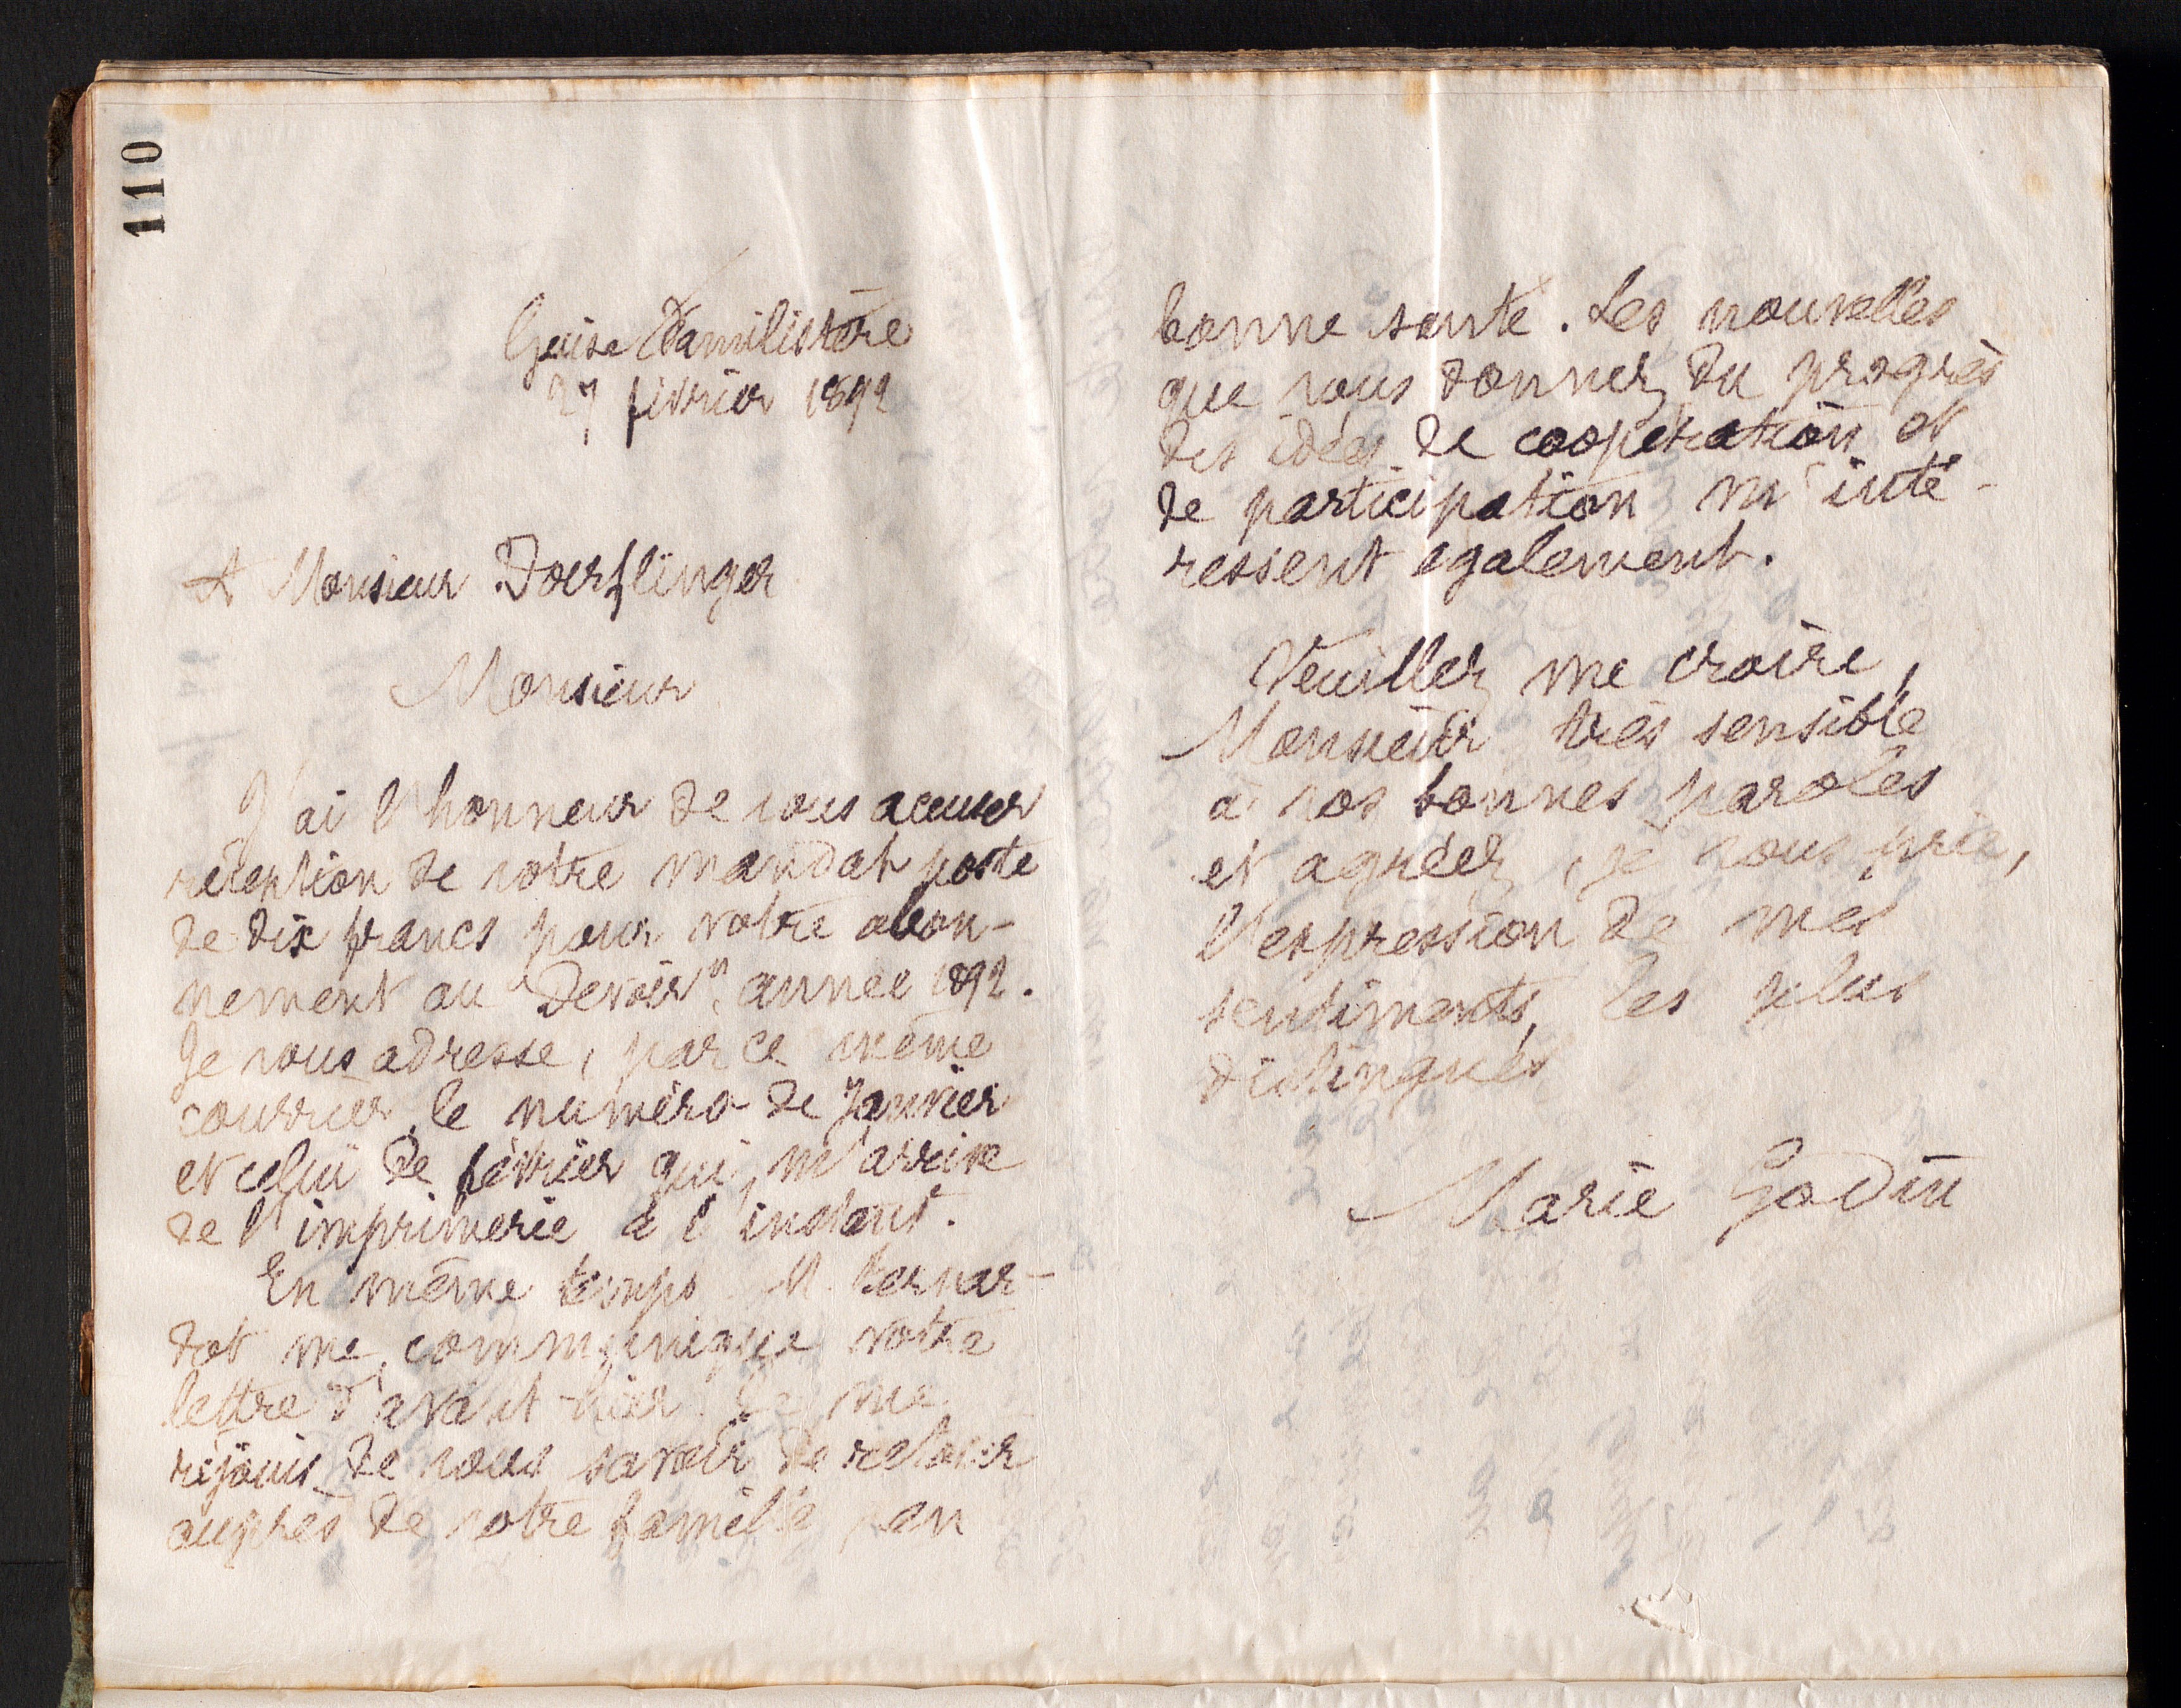 110
Guise Familistère
27 février 1892
A Monsieur Doerflinger
Monsieur
J'ai l'honneur de vous accuser
réception de votre mandat poste
de dix francs pour votre abon-
nement au "Devoir", année 1892.
Je vous adresse, par ce même
courrier, le numéro de Janvier
et celui de février qui m'arrive
de l'imprimerie à l'instant.
En même temps M. Bernar-
dot me communique votre
lettre d'avant-hier. Je me
réjouis de vous savoir de retour
auprès de votre famille, en
bonne santé. Les nouvelles
que vous donnez du progrès
des idées de coopération et
de participation m'inté-
ressent également.
Veuillez me croire,
Monsieur très sensible
à vos bonnes paroles
et agréez, je vous prie,
l'expression de mes
sentiments les plus
distingués
Marie Godin